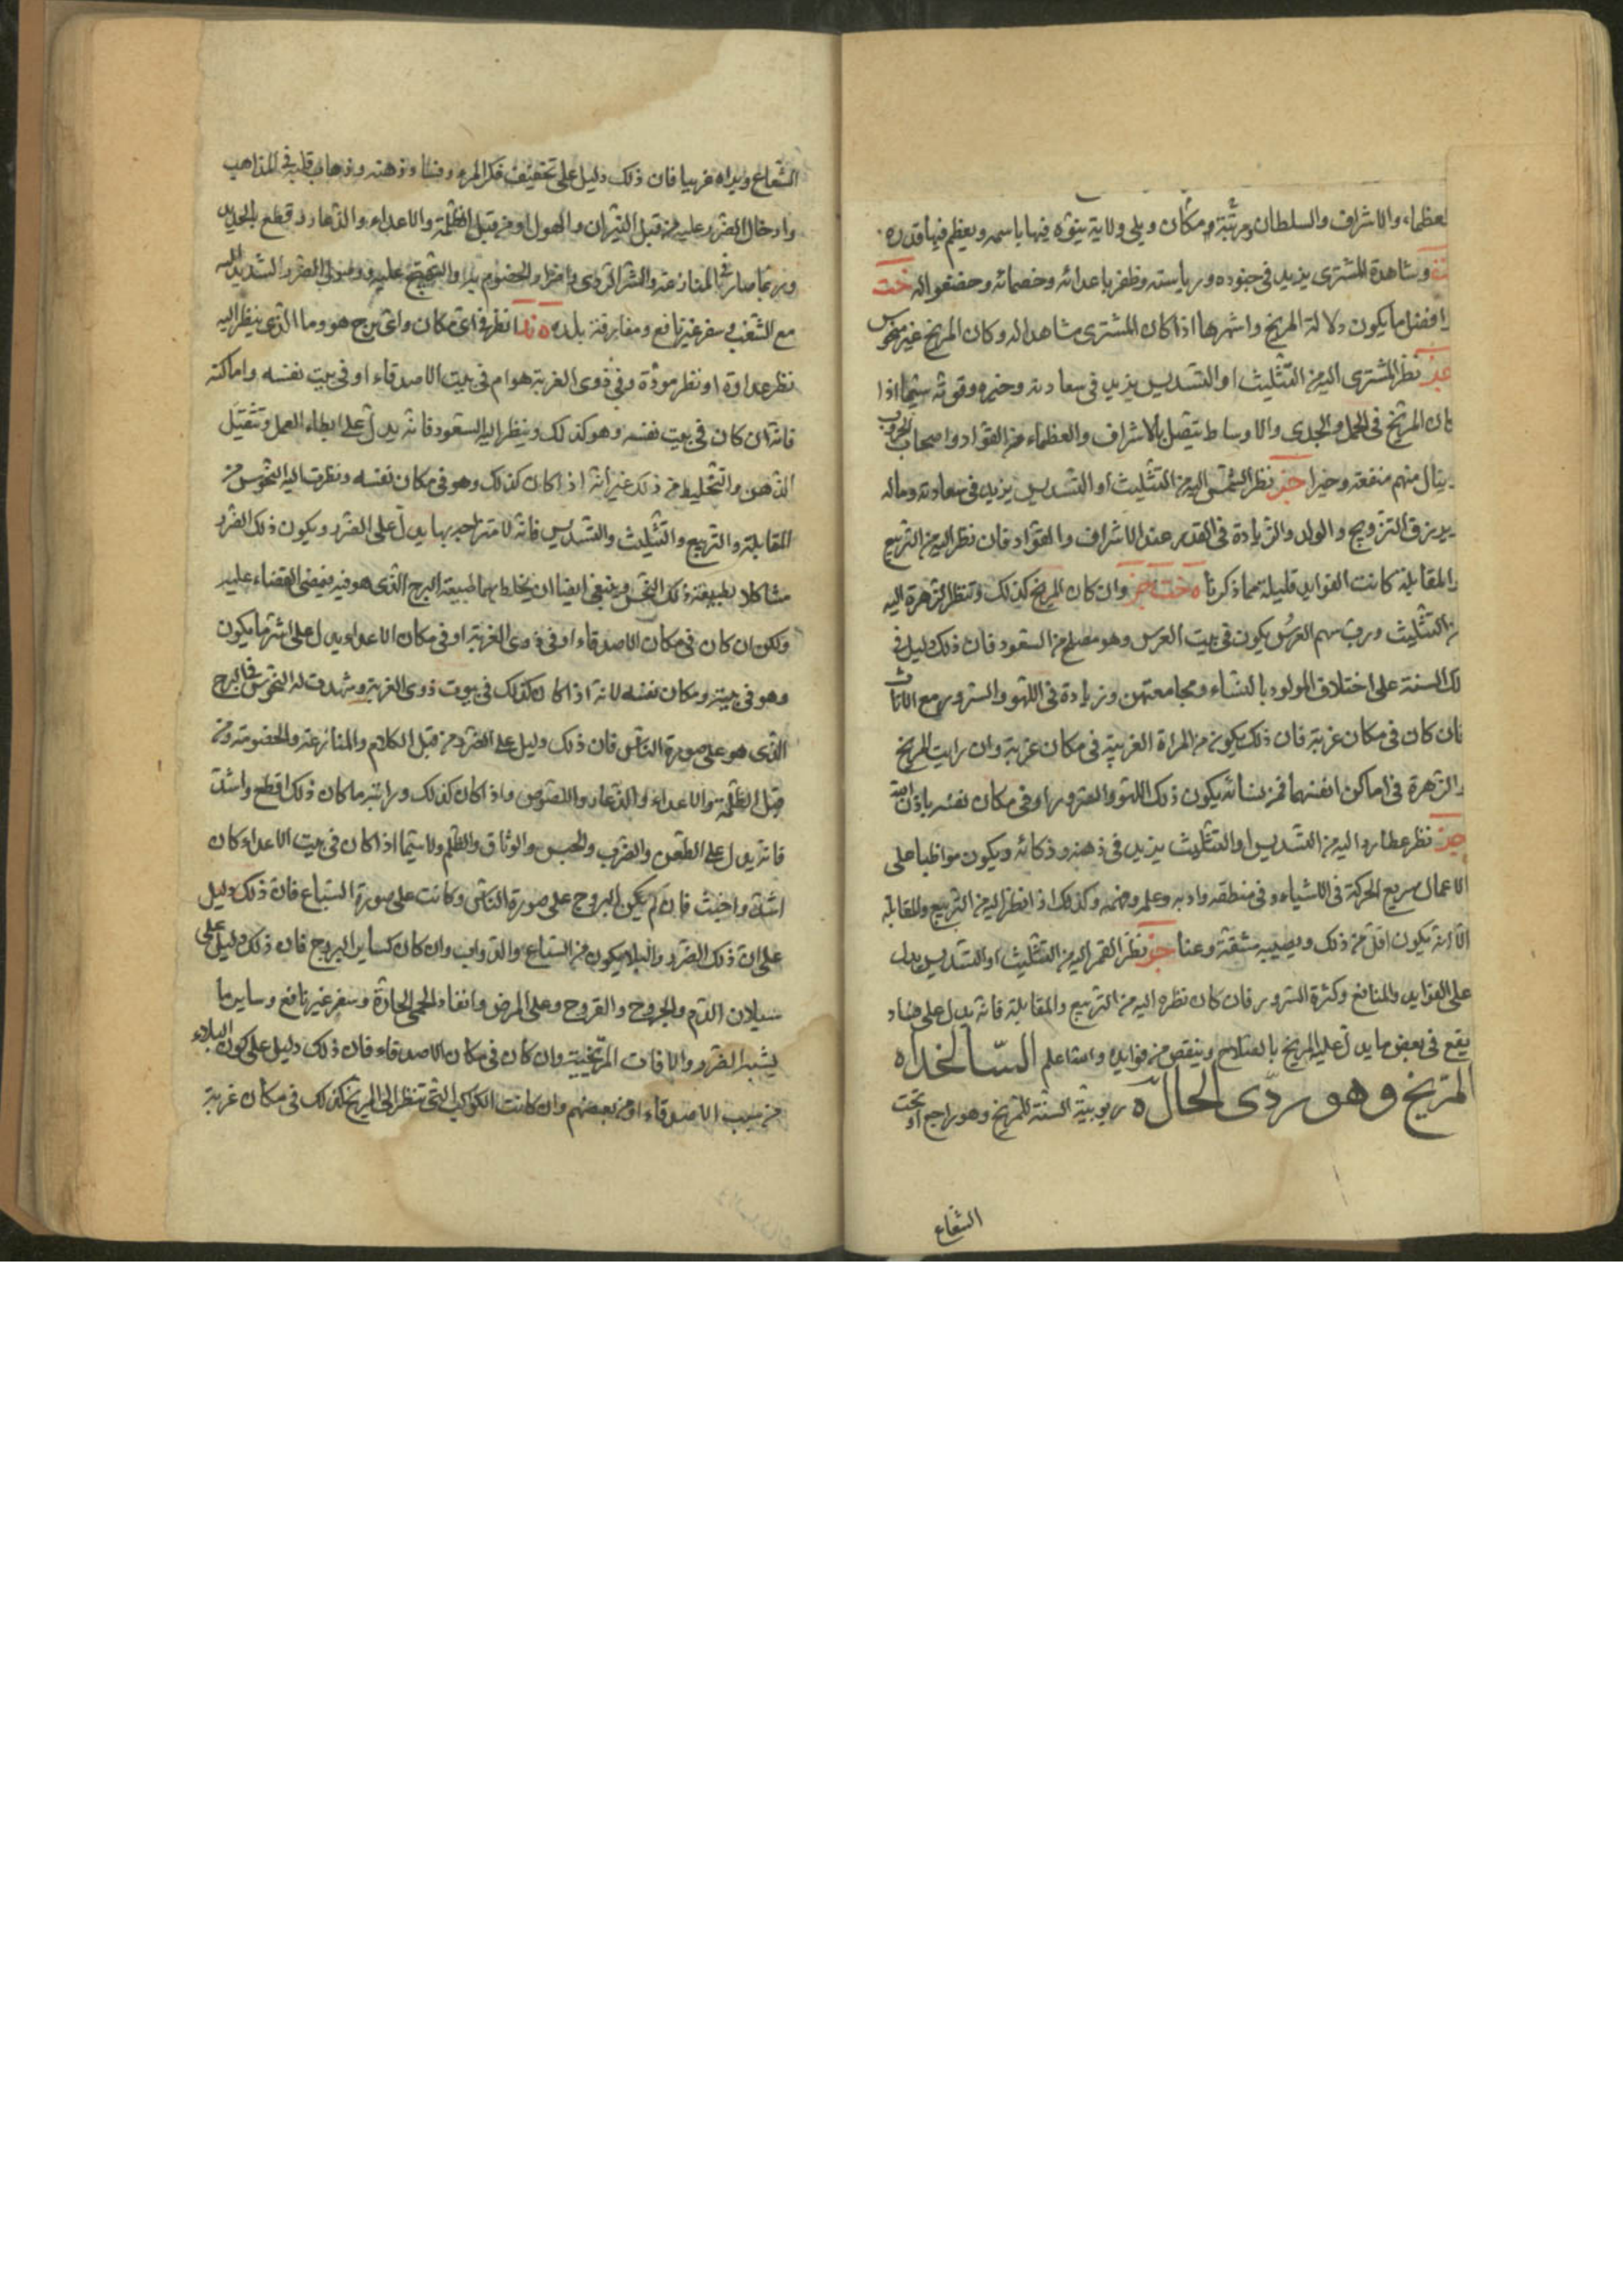 لعظماء والاشراف والسلطان ومرتبة ومكان ويلي ولاية ينوّه فيها باسمه ويعظم فيها قدره
ومشاهدة المشترى يزيد فى جنوده ورياسته وظفر باعدائه وخصمائه وخضعوا له خت
وافضل ما يكون دلالة المريخ واشهرها اذا كان المشترى مشاهدا له وكان المريخ غير منحوس
نظر المشترى اليه من التثليث او التسديس يزيد فى سعادته وخيره وقوته سيّما اذا
كان المريخ فى الحمل والجدى والاوساط يتصل بالاشراف والعظماء من القوّاد واصحاب الحروب
ينال منهم منفعة وخيرا نظر الشمس اليه من التثليث او التسديس يزيد فى سعادته وماله
ويرزق التزويج والولد والزيادة فى القدر عند الاشراف والقوّاد فان نظر اليه من التربيع
والمقابلة كانت الفوايد قليلة مما ذكرنا ه وان كان المريخ كذلك وتنظر الزهرة اليه
من التثليث وربّ سهم العرس يكون فى بيت العرس وهو مصلح من السعود فان ذلك دليل فى
تلك السنة على اختلاف المولود بالنساء ومجامعتهن وزيادة فى اللهو والسرور مع الاناث
فان كان فى مكان غربة فان ذلك يكون من المراة الغريبة فى مكان غربة وان رايت المريخ
والزهرة فى اماكن انفسهما فمن نسائه يكون ذلك اللهو والسرور او فى مكان نفسه باذن الله
نظر عطارد اليه من التسديس او التثليث يزيد فى ذهنه وذكائه ويكون مواظبا على
الاعمال سريع الحركة فى الاشياء وفى منطقه وادبه وعلمه وفهمه وكذلك اذا نظر اليه من التربيع والمقابلة
الّا انه يكون اقلّ من ذلك ويصيبه مشقّة وعنا نظر القمر اليه من التثليث او التسديس يدل
على الفوايد والمنافع وكثرة السرور فان كان نظره اليه من التربيع والمقابلة فانه يدل على فساد
يقع فى بعض ما يدلّ عليه المريخ بالصلاح وينقص من فوايده والله اعلم السّالخداه
المرّيخ وهو ردّى الحال ه ربوبيّة السّنة للمريخ وهو راجع او تحت
الشعاع
الشّعاع ويراه غربيا فان ذلك دليل على تخفيف فكر المرء وفساد ذهنه وذهاب قلبه فى المذاهب
وادخال الضرر عليه من قبل النيران والهول او من قبل الظلمة والاعداء والذعار وقطع بالحديد
وربما صار فى المنازعة والشرّ الردى والخصوم والضرر الشديد
مع الشغب وسفر غير نافع ومفارقة بلده ه انظر فى اىّ مكان واىّ برج هو وما الذى ينظر اليه
نظر عداوة او نظر مودّة وفى ذوى الغربة هو ام فى بيت الاصدقاء او فى بيت نفسه واماكنه
فانه ان كان فى بيت نفسه وهو كذلك وينظر اليه السعود فانه يدلّ على ابطاء العمل وتثقيل
الذهن والتخليط من ذلك غير انه اذا كان كذلك وهو فى مكان نفسه ونظرت اليه النحوس من
المقابلة والتربيع والتثليث والتسديس فانه لامتزاجه بها يدلّ على الضرر ويكون ذلك الضرر
مشاكلا لطبيعة ذلك النحس وينبغى ايضا ان يخلط بهما طبيعة البرج الذى هو فيه ليمضى القضاء عليه
ولكن ان كان فى مكان الاصدقاء او فى ذوى الغربة او فى مكان الاعداء يدل على اشرّ ما يكون
وهو فى بيته ومكان نفسه لانه اذا كان كذلك فى بيوت ذوى الغربة وشهدت له النحوس فى البرج
الذى هو على صورة النّاس فان ذلك دليل على الضرر من قبل الكلام والمنازعة والخصومة ومن
قبل الظلمة والاعداء والذعار واللصوص واذا كان كذلك ورايته ما كان ذلك اقطع واشدّ
فانه يدل على الطعن والضرب والحبس والوثاق والظلم ولا سيّما اذا كان فى بيت الاعداء كان
اشدّ واخبث فان لم يكن البروج على صورة الناس وكانت على صورة السّباع فان ذلك دليل
على ان ذلك الضّرر والبلاء يكون من السّباع والدواب وان كان كساير البروج فان ذلك دليل على
سيلان الدّم والجروح والقروح وعلى المرض وايقاد الحمى الحارّة وسفر غير نافع وساير ما
يشبه الضّرر والافات المرّيخية وان كان فى مكان الاصدقاء فان ذلك دليل على كون البلاء
من سبب الاصدقاء او من بعضهم وان كانت الكواكب التى تنظر الى المريخ كذلك فى مكان غربة